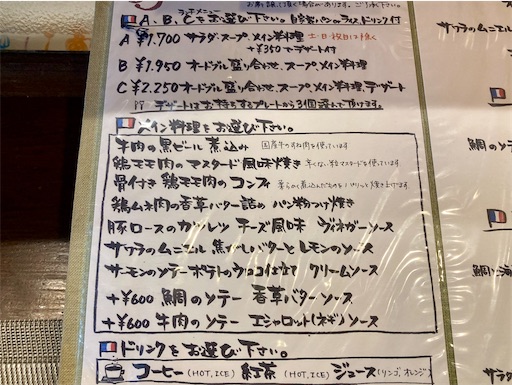 ランチメニュー
A、B、Cをお選び下さい。自家製パンorライス、ドリンク付
A ¥1,700 サラダ・スープ、メイン料理 土・日・祝日は除く
+¥350でデザート付
B ¥1,950 オードブル盛り合わせ、スープ、メイン料理
C ¥2,250 オードブル盛り合わせ、スープ、メイン料理、デザート
デザートはお持ちするプレートから3個選んで頂けます。
メイン料理をお選び下さい。
牛肉の黒ビール煮込み 国産牛のすね肉を使っています
鶏モモ肉のマスタード風味焼き 辛くない粒マスタードを使っています
骨付き鶏モモ肉のコンフィ 柔らかく煮込んだものをパリッと焼き上げます
鶏ムネ肉の香草バター詰め パン粉つけ焼き
豚ロースのカツレツ チーズ風味 ヴィネガーソース
サワラのムニエル 焦がしバターとレモンのソース
サーモンのソテー ポテトのウロコ仕立て クリームソース
+¥600 鯛のソテー 香草バターソース
+¥600 牛肉のソテー エシャロット(ネギ)ソース
ドリンクをお選び下さい。
コーヒー(HOT,ICE) 紅茶(HOT,ICE) ジュース(リンゴ,オレンジ)
サワラのムニエル
鯛のソ